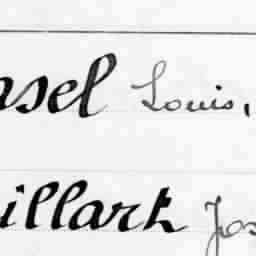 nsel Louis,
illark Jos